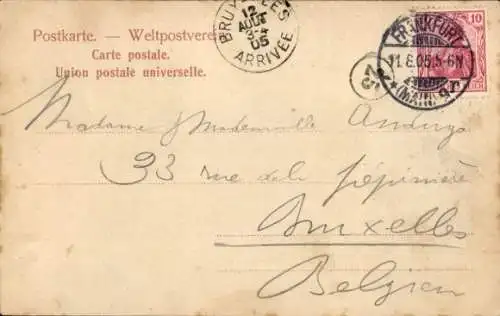 Postkarte. — Weltpostvere
Carte postale.
Union postale universelle.
BRUXELLES
12
AOUT
3-4
05
ARRIVÉE
FRANKFURT
11.8.05.5-6N
(MAIN)
10
Madame & Mademoiselle
33 rue de la pépinière
Bruxelles
Belgien